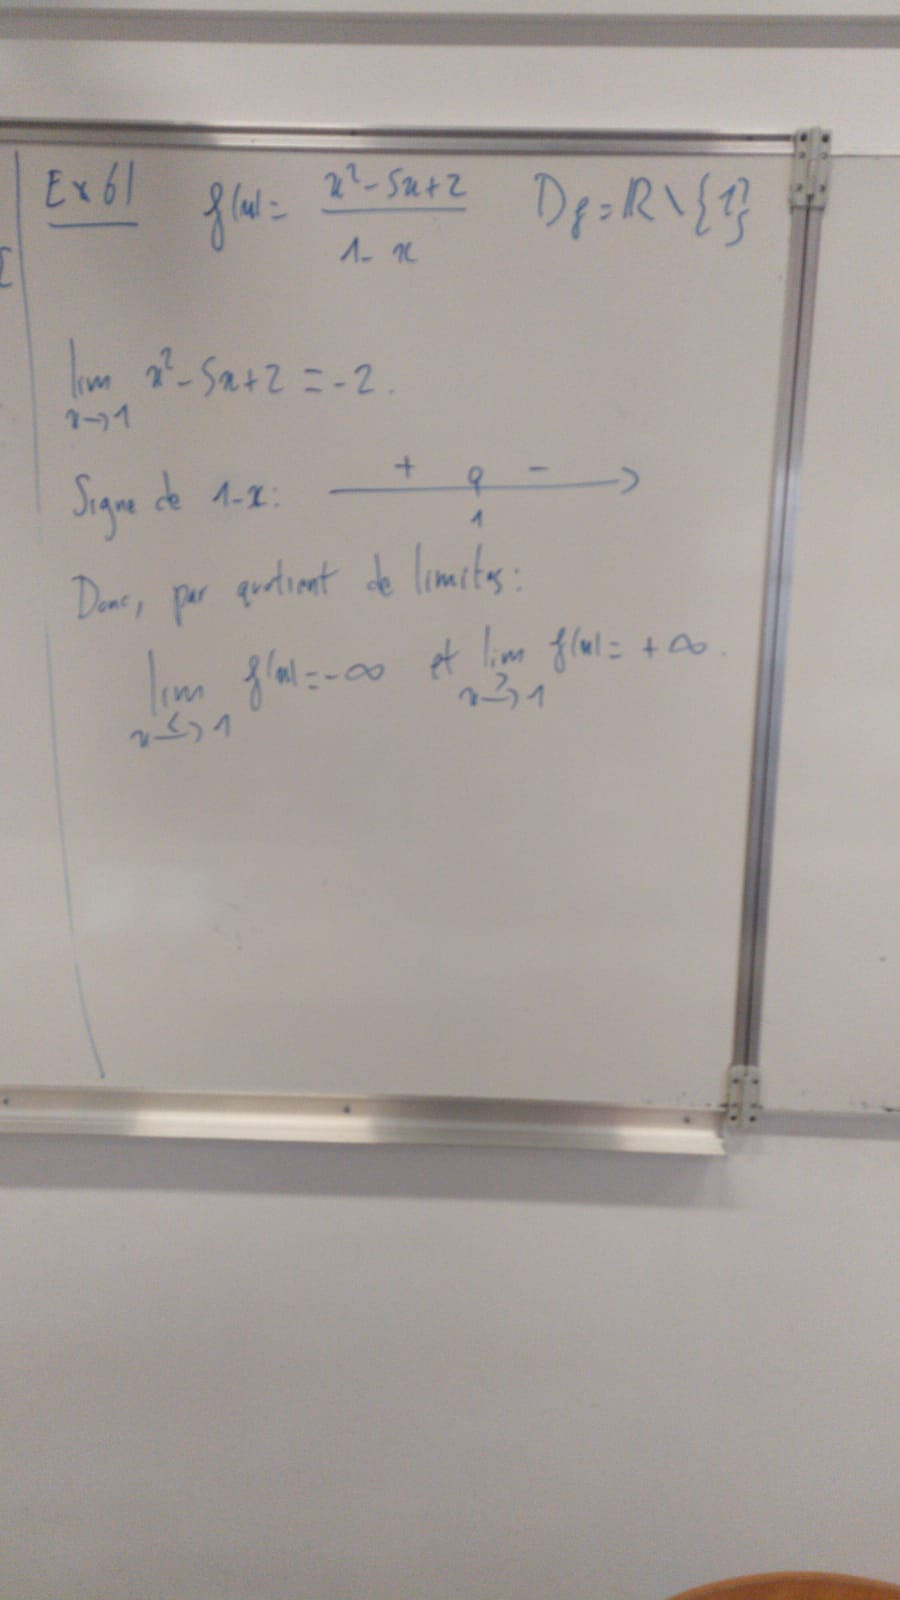 Ex 61 f(x) = (x²-5x+2)/(1-x) D_f = ℝ \ {1}
lim_{x→1} x²-5x+2 = -2.
Signe de 1-x: + 0 - 1
Donc, par quotient de limites:
lim_{x→1, <} f(x) = -∞ et lim_{x→1, >} f(x) = +∞.